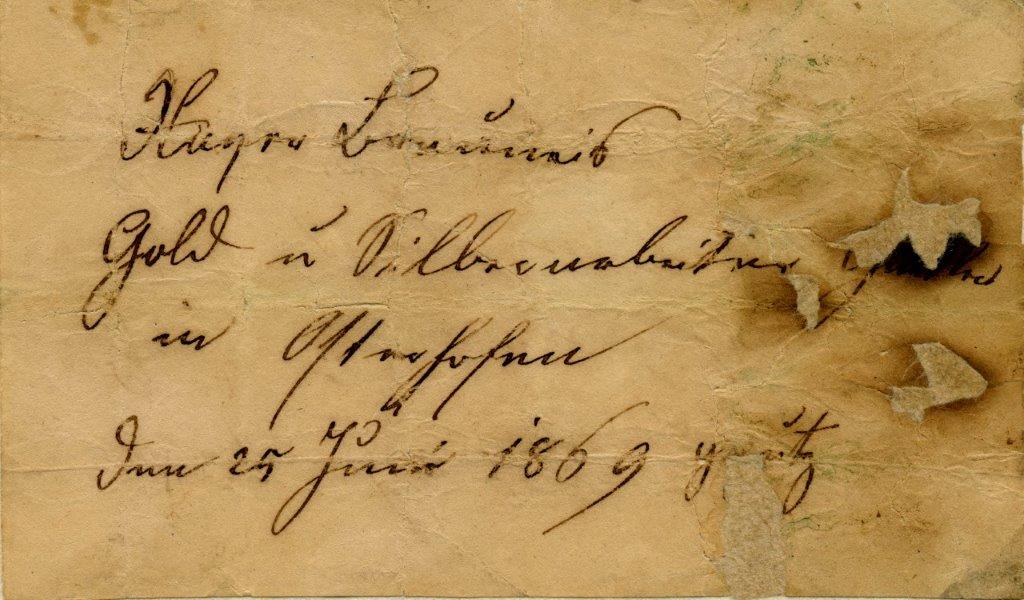 Xaver Brauneis
Gold u Silberarbeiter
in Osterhofen
den 25 Juni 1869